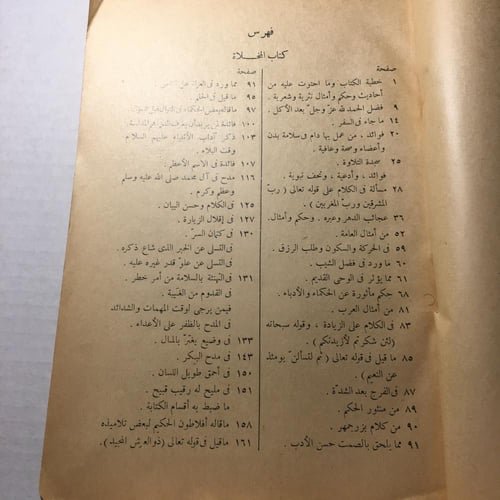 فهرس
كتاب المخلاة
صفحة
١ خطبة الكتاب وما احتوت عليه من
أحاديث وحكم وأمثال نثرية وشعرية .
٩ فضل الحمد لله عزّ وجلّ بعد الأكل .
١٤ ما جاء فى السفر .
٢٠ فوائد ، من عمل بها دام فى سلامة بدن
وأعضاء وصحة وعافية .
٢٥ سجدة التلاوة .
فوائد ، وأدعية ، وتحف نبوية .
٢٨ مسألة فى الكلام على قوله تعالى ( ربّ
المشرقين وربّ المغربين ) .
٣٦ عجائب الدهر وعبره . وحكم وأمثال .
٥٢ من أمثال العامة .
٥٩ فى الحركة والسكون وطلب الرزق .
٦٠ ما ورد فى فضل الشيب .
٦١ مما يؤثر فى الوحى القديم .
٦٨ حكم مأثورة عن الحكماء والأدباء .
٨١ من أمثال العرب .
٨٣ فى الكلام على الزيادة ، وقوله سبحانه
( لئن شكرتم لأزيدنكم ) .
٨٥ ما قيل فى قوله تعالى ( ثم لتسألنّ يومئذ
عن النعيم ) .
٨٧ فى الفرج بعد الشدّة .
٨٩ من منثور الحكم .
٩٠ من كلام بزرجمهر .
٩١ مما يلحق بالصمت حسن الأدب .
صفحة
٩١ مما ورد فى العزلة عن الناس .
٩٥ ما قيل فى الحلم
٩٧ ما قاله بعض الحكماء فى السؤال قبل السؤال .
١٠٠
١٠٣ ذكر آداب الأنبياء عليهم السلام
وقت البلاء .
١٠٧ فائدة فى الاسم الأعظم .
١١٦ مدح آل محمد صلى الله عليه وسلم
وعظم وكرم .
١٢٥ فى الكلام وحسن البيان .
١٢٧ فى إقلال الزيارة .
١٣٠ فى كتمان السرّ .
التسلى عن الخبر الذى شاع ذكره .
التسلى عن علوّ قدر غيره عليه .
١٣١ فى التهنئة بالسلامة من أمر خطر .
فى القدوم من الغيبة .
فيمن يرجى لوقت المهمات والشدائد
فى المدح بالظفر على الأعداء .
١٣٣ فى وضيع يغترّ بالمال .
١٤٣ فى مدح البكر .
١٥٠ فى أحمق طويل اللسان .
١٥١ فى مليح له رقيب قبيح .
ما ضبط به أقسام الكتابة .
١٥٨ ما قاله أفلاطون الحكيم لبعض تلاميذه
١٦١ ما قيل فى قوله تعالى (ذو العرش المجيد).